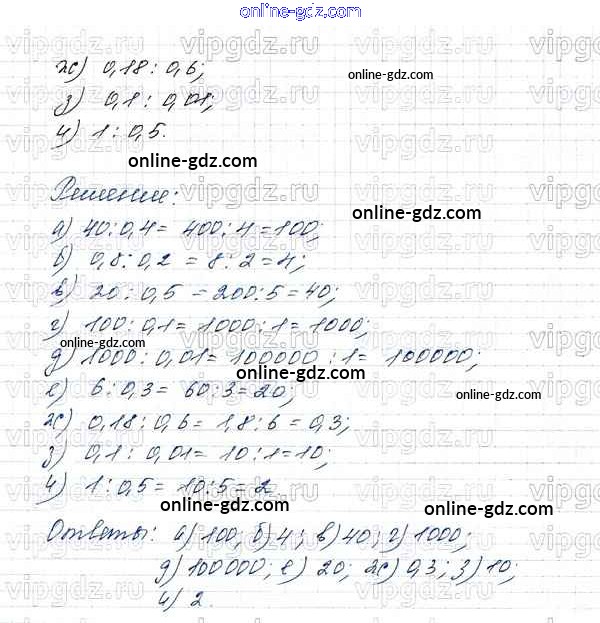 online-gdz.com
ж) 0,18 : 0,6;
online-gdz.com
з) 0,1 : 0,01;
и) 1 : 0,5.
online-gdz.com
Решение:
online-gdz.com
а) 40:0,4= 400:4=100;
б) 0,8:0,2 = 8:2=4;
в) 20:0,5 =200:5=40;
online-gdz.com
г) 100:0,1= 1000:1=1000;
д) 1000:0,01=100000:1= 100000;
е) 6:0,3= 60:3=20;
online-gdz.com
ж) 0,18:0,6= 1,8:6=0,3;
з) 0,1: 0,01= 10:1=10;
и) 1:0,5= 10:5=2
online-gdz.com
online-gdz.com
Ответы: а) 100; б) 4; в) 40; г) 1000;
д) 100000; е) 20; ж) 0,3; з) 10;
и) 2.
online-gdz.com
vipgdz.ru vipgdz.ru vipgdz.ru